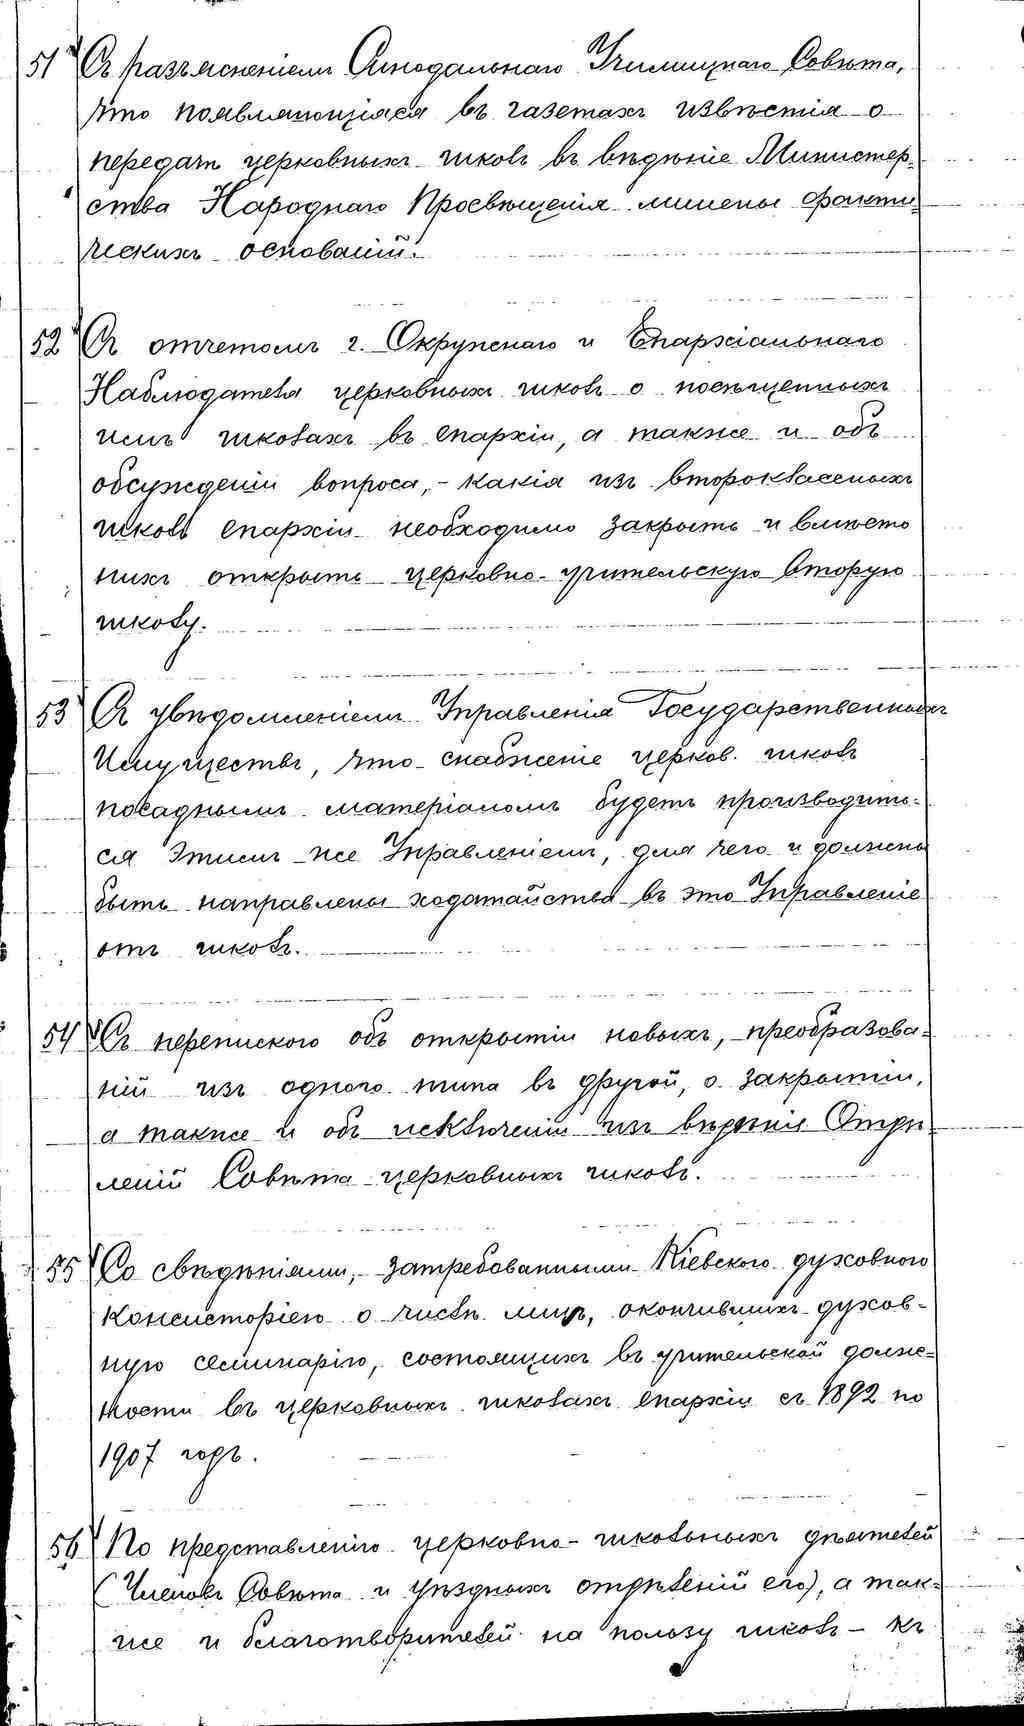 51 Съ разъясненіемъ Синодальнаго Училищнаго Совѣта,
что появляющіяся въ газетахъ извѣстія о
передачѣ церковныхъ школъ въ вѣдѣніе Министер-
ства Народнаго Просвѣщенія лишены факти-
ческихъ основаній.
52 Съ отчетомъ г. Окружнаго и Епархіальнаго
Наблюдателя церковныхъ школъ о посѣщенныхъ
имъ школахъ въ епархіи, а также и объ
обсужденіи вопроса, - какія изъ второклассныхъ
школъ епархіи необходимо закрыть и вмѣсто
нихъ открыть церковно-учительскую вторую
школу.
53 Съ увѣдомленіемъ Управленія Государственныхъ
Имуществъ, что снабженіе церков. школъ
посаднымъ матеріаломъ будетъ производить-
ся этимъ же Управленіемъ, для чего и должны
быть направлены ходатайства въ это Управленіе
отъ школъ.
54 Съ перепискою объ открытіи новыхъ, преобразова-
ній изъ одного типа въ другой, о закрытіи,
а также и объ исключеніи изъ вѣдѣнія Отдѣ-
леній Совѣта церковныхъ школъ.
55 Со свѣдѣніями, затребованными Кіевскою духовною
Консисторіею о числѣ лицъ, окончившихъ духов-
ную семинарію, состоящихъ въ учительской долж-
ности въ церковныхъ школахъ епархіи съ 1892 по
1907 годъ.
56 По представленію церковно-школьныхъ дѣятелей
(Членовъ Совѣта и уѣздныхъ отдѣленій его), а так-
же и благотворителей на пользу школъ - къ